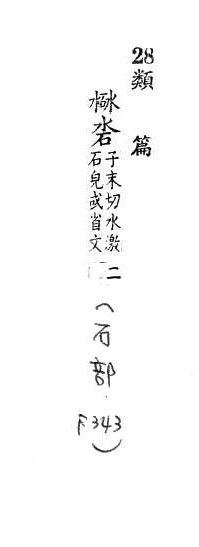 28類篇
沯
子末切水激
石皃或省文
二
(石部 F343)